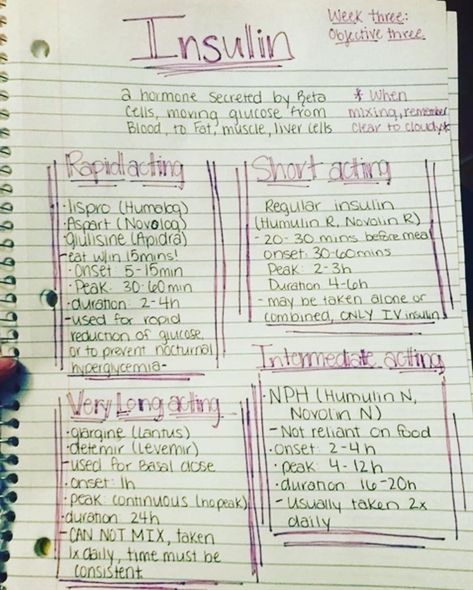 Insulin
Week three:
Objective three
a hormone secreted by Beta
cells, moving glucose from
Blood, to Fat, muscle, liver cells
* When
mixing, remember
clear to cloudy*
Rapid acting
·lispro (Humalog)
Aspart (Novolog)
glulisine (Apidra)
-eat w/in 15mins!
·Onset: 5-15min
·Peak: 30-60min
·duration: 2-4h
-used for rapid
reduction of glucose,
or to prevent nocturnal
hyperglycemia-
Short acting
Regular insulin
(Humulin R, Novolin R)
-20-30 mins before meal
onset: 30-60mins
Peak: 2-3h
Duration 4-6h
-may be taken alone or
combined, ONLY IV insulin
Very Long acting
·glargine (Lantus)
detemir (Levemir)
-used for Basal dose
·onset: 1h
·peak: continuous (no peak)
·duration 24h
-CAN NOT MIX, taken
1x daily, time must be
consistent
Intermediate acting
·NPH (Humulin N,
Novolin N)
-Not reliant on food
·onset: 2-4h
·peak: 4-12h
·duration 16-20h
-usually taken 2x
daily